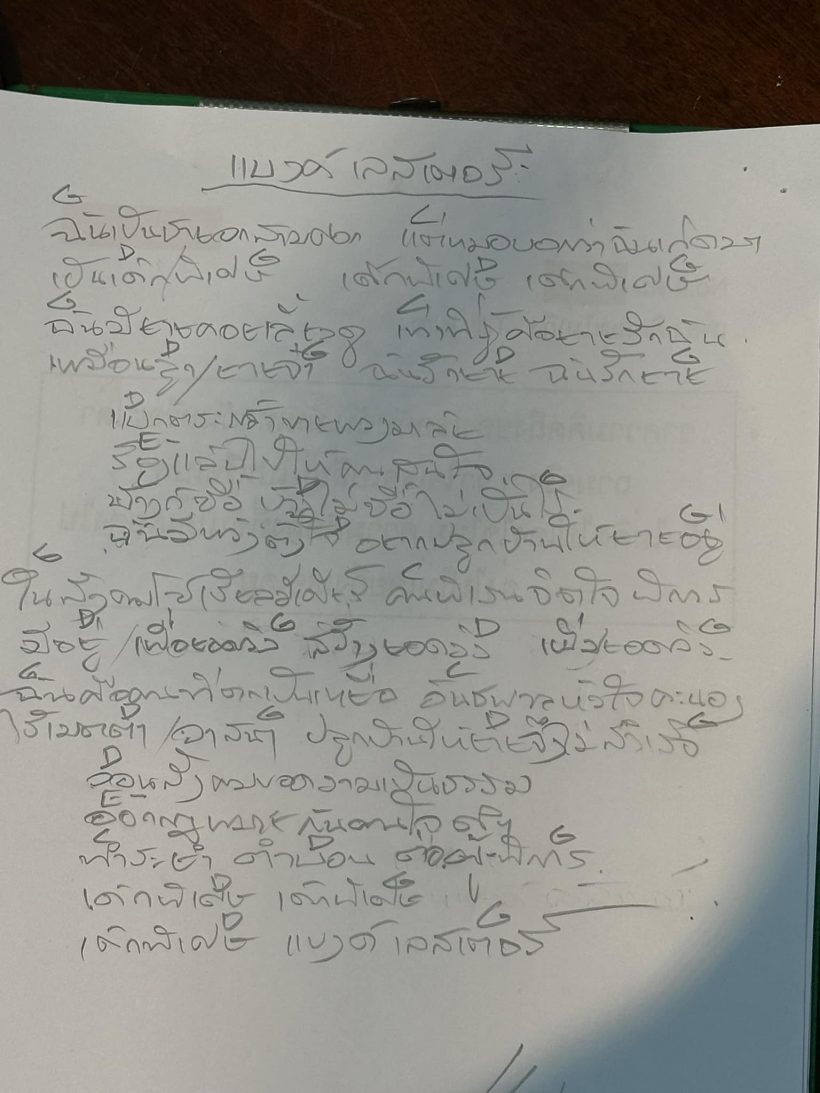 แบงค์ เลสเตอรี่
G C
ฉันเป็นชายอกสามศอก แต่หมอบอกว่าฉันเกิดมา
D G D G
เป็นเด็กพิเศษ เด็กพิเศษ เด็กพิเศษ
G C
ฉันมียายคอยเลี้ยงดู เท่าที่รู้คือยายรักฉัน
D G D G
เหมือน /ยายจ๋า ฉันรักยาย ฉันรักยาย
D
แบกตระกร้าขายพวงมาลัย
E
ร้อง ไปให้คนสนใจ
D G
บ้างก็ซื้อ บ้างไม่ซื้อ ไม่เป็นไร
D G
ฉันมีหวังตั้งใจ อยากปลูกบ้านให้ยายอยู่
G C
ในสังคมโซเชียลมีเดีย คนพิเรนจิตใจพิการ
D G D G
มีอยู่ /เพื่อยอดวิว สร้างยอดวิว เพื่อยอดวิว
G
ฉันคือคนที่ตกเป็นเหยื่อ อันธพาลหัวใจคะนอง
G D G
ไร้เมตตา /วาสนา ปลูกบ้านให้ยายจึงไม่สำเร็จ
D
วอนสังคมขอความเป็นธรรม
E
ออกกฎหมายกัน
C D G
ทำระยำ ต่ำ พิการ
D G
เด็กพิเศษ เด็กพิเศษ
D G
เด็กพิเศษ แบงค์ เลสเตอรี่